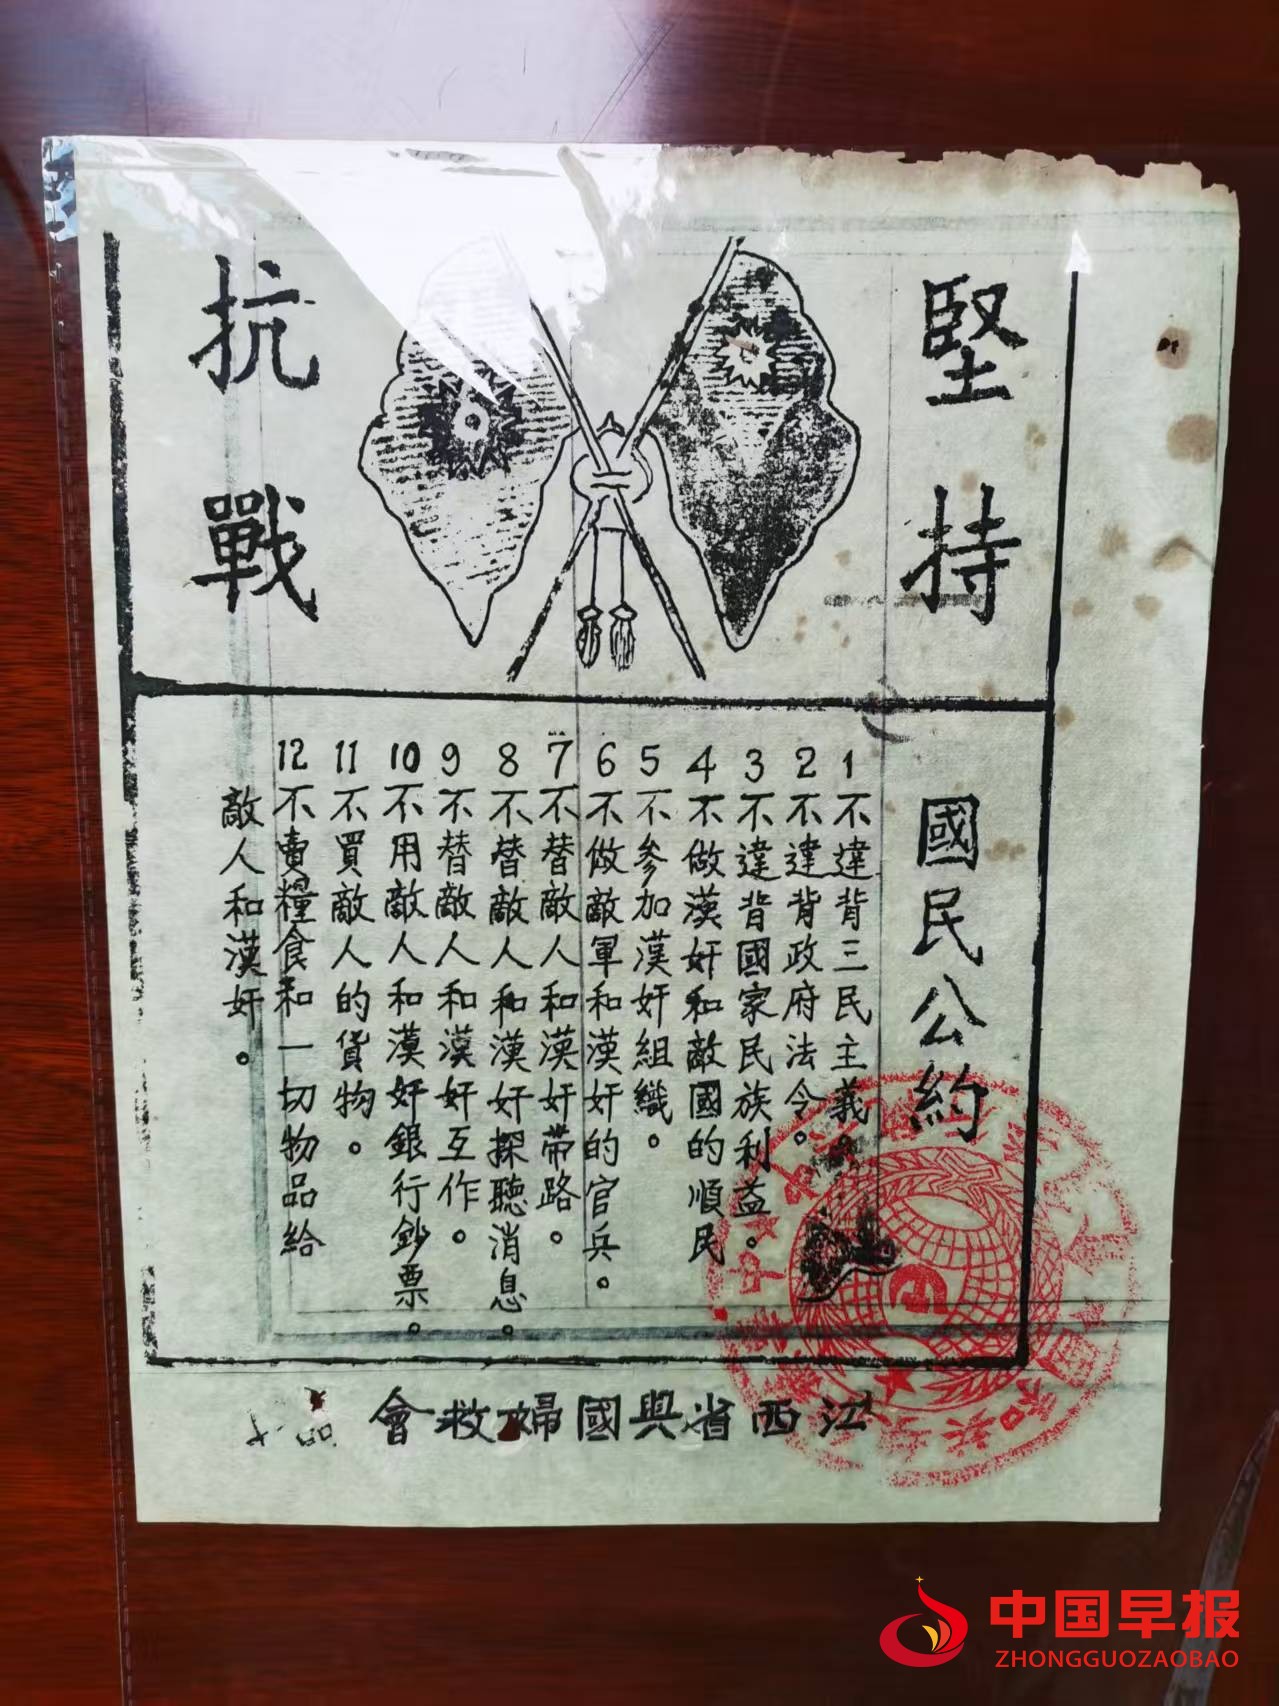 堅持
抗戰
國民公約
1 不違背三民主義。
2 不違背政府法令。
3 不違背國家民族利益。
4 不做漢奸和敵國的順民
5 不參加漢奸組織。
6 不做敵軍和漢奸的官兵。
7 不替敵人和漢奸帶路。
8 不替敵人和漢奸探聽消息。
9 不替敵人和漢奸互作。
10 不用敵人和漢奸銀行鈔票。
11 不買敵人的貨物。
12 不賣糧食和一切物品給
敵人和漢奸。
江西省興國婦救會
中国早报
ZHONGGUOZAOBAO